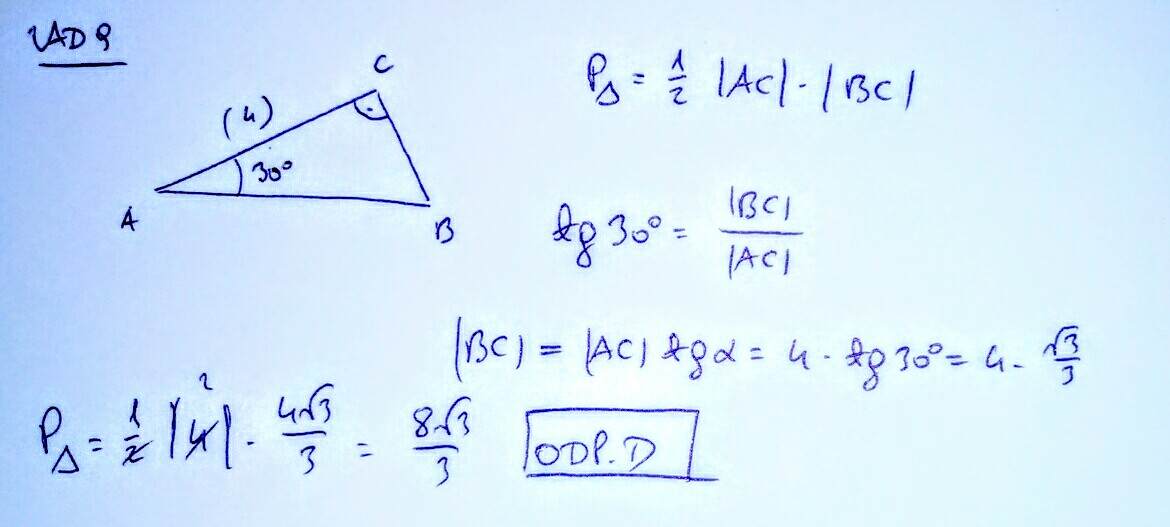 ZAD 9
C
(4)
30°
A
B
P∆ = 1/2 |AC| · |BC|
tg 30° = |BC|/|AC|
|BC| = |AC| tg α = 4 · tg 30° = 4 · √3/3
P∆ = 1/2 |4| 2 · 4√3/3 = 8√3/3
ODP. D